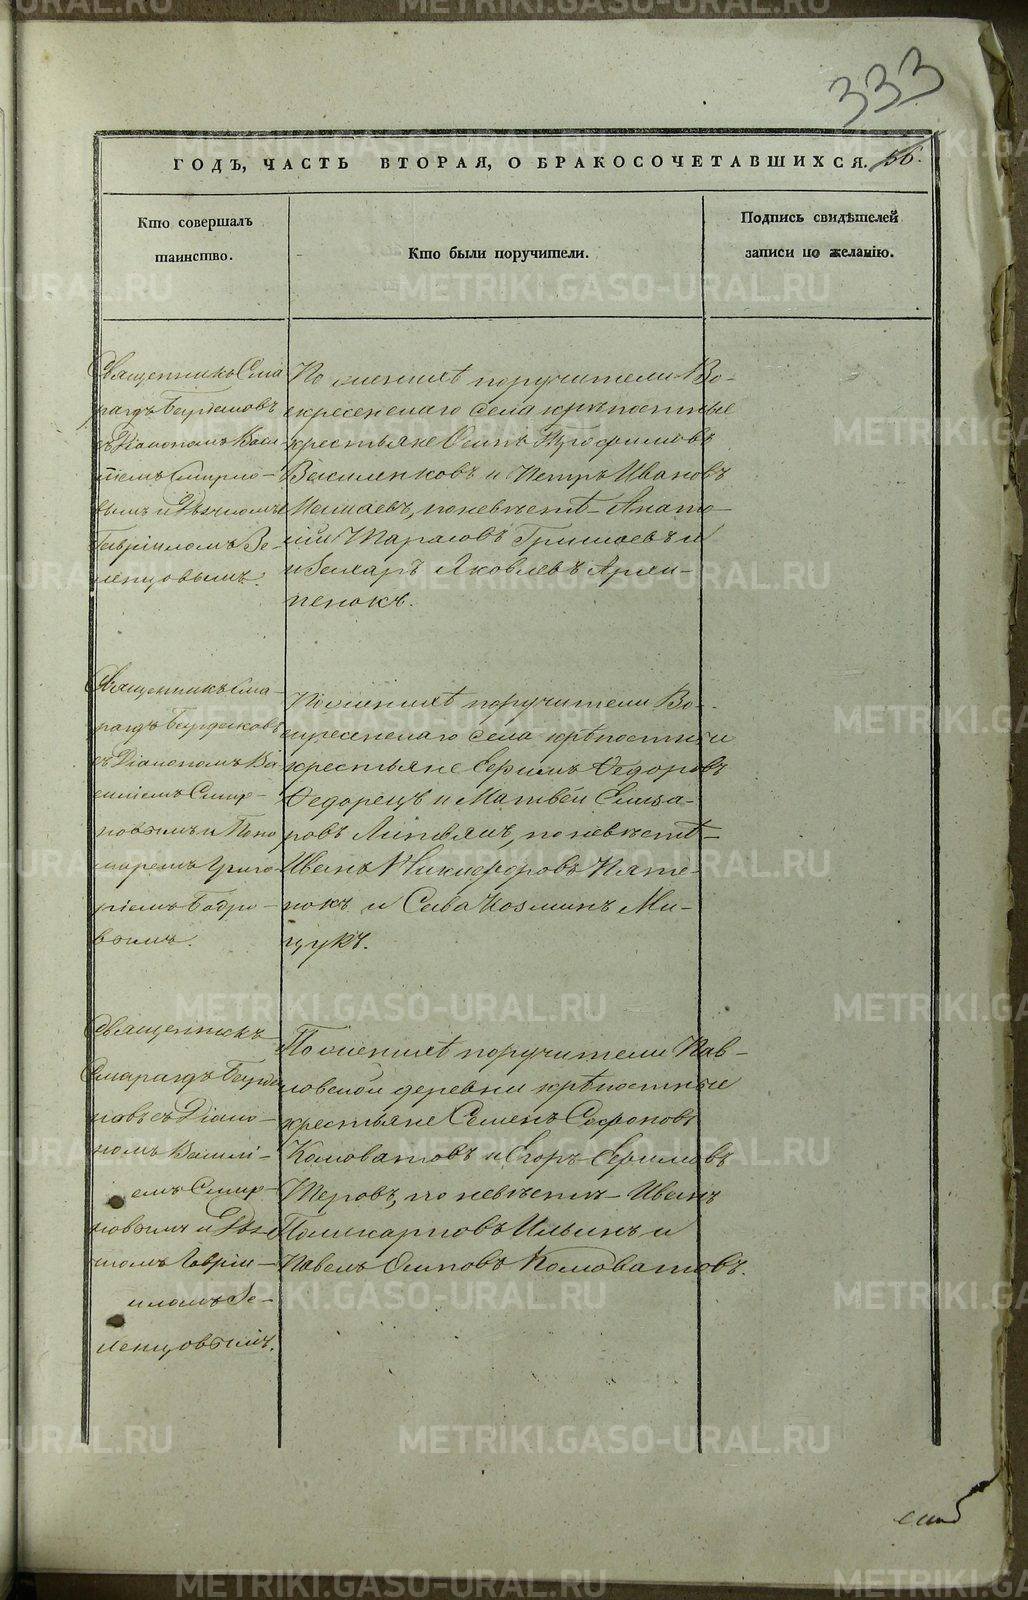 333
ГОДЪ, ЧАСТЬ ВТОРАЯ, О БРАКОСОЧЕТАВШИХСЯ. 56.
Кто совершалъ
таинство.
Кто были поручители.
Подпись свидѣтелей
записи по желанію.
Священникъ Сма
рагдъ
съ Діакономъ Васи
ліемъ Смирно-
вымъ и Дьячкомъ
Гавріиломъ Зе-
ленцовымъ.
По женихѣ поручители Во-
скресенскаго села крѣпостные
крестьяне Осипъ Трофимовъ
Василенковъ и Петръ Ивановъ
по невѣстѣ
Тарасовъ
и Захаръ Яковлевъ Архи-
пенокъ.
Священникъ Сма-
рагдъ
съ Діакономъ Ва
силіемъ Смир-
новымъ и Поно
маремъ Григо-
ріемъ Бобро-
вымъ.
По женихѣ поручители Во-
скресенскаго села крѣпостные
крестьяне Ефимъ Ѳедоровъ
Ѳедорецъ и Матвѣй Елиза-
ровъ по невѣстѣ
Иванъ Никифоровъ
и Сава Козминъ Ми-
цукъ.
Священникъ
Смарагдъ
съ Діако-
номъ Василі-
емъ Смир-
новымъ и Дья
комъ Гаврі-
иломъ Зе-
ленцовымъ.
По женихѣ поручители Пав-
ловской деревни крѣпостные
крестьяне Семенъ Софроновъ
Коноватовъ и Егоръ Ефимовъ
по невѣстѣ Иванъ
Поликарповъ Ильинъ и
Павелъ Осиповъ Коноватовъ.
METRIKI.GASO-URAL.RU